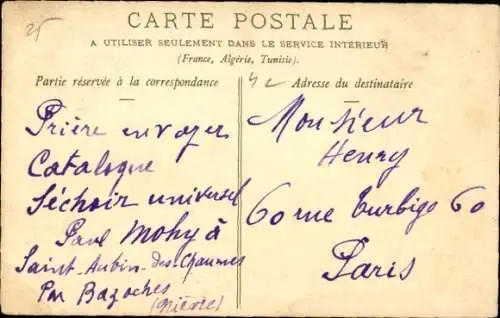 25
CARTE POSTALE
A UTILISER SEULEMENT DANS LE SERVICE INTÉRIEUR
(France, Algérie, Tunisie).
Partie réservée à la correspondance
Adresse du destinataire
Prière envoyer
Catalogue
Séchoir universel
Paul Mohy à
Saint-Aubin-des-Chaumes
Par Bazoches
(Nièvre)
Monsieur
Henry
60 rue Turbigo 60
Paris